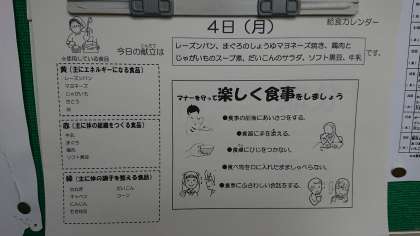 4日（月）
給食カレンダー
今日の献立は
レーズンパン、まぐろのしょうゆマヨネーズ焼き、鶏肉と
じゃがいものスープ煮、だいこんのサラダ、ソフト黒豆、牛乳
です。
※使用している食品
黄（主にエネルギーになる食品）
レーズンパン
マヨネーズ
じゃがいも
さとう
油
赤（主に体の組織をつくる食品）
牛乳
まぐろ
鶏肉
ソフト黒豆
緑（主に体の調子を整える食品）
たまねぎ
だいこん
キャベツ
コーン
にんじん
マナーを守って楽しく食事をしましょう
●食事の前後にあいさつをする。
●食器に手を添える。
●食卓にひじをつかない。
●食べ物を口に入れたまましゃべらない。
●食事にふさわしい会話をする。